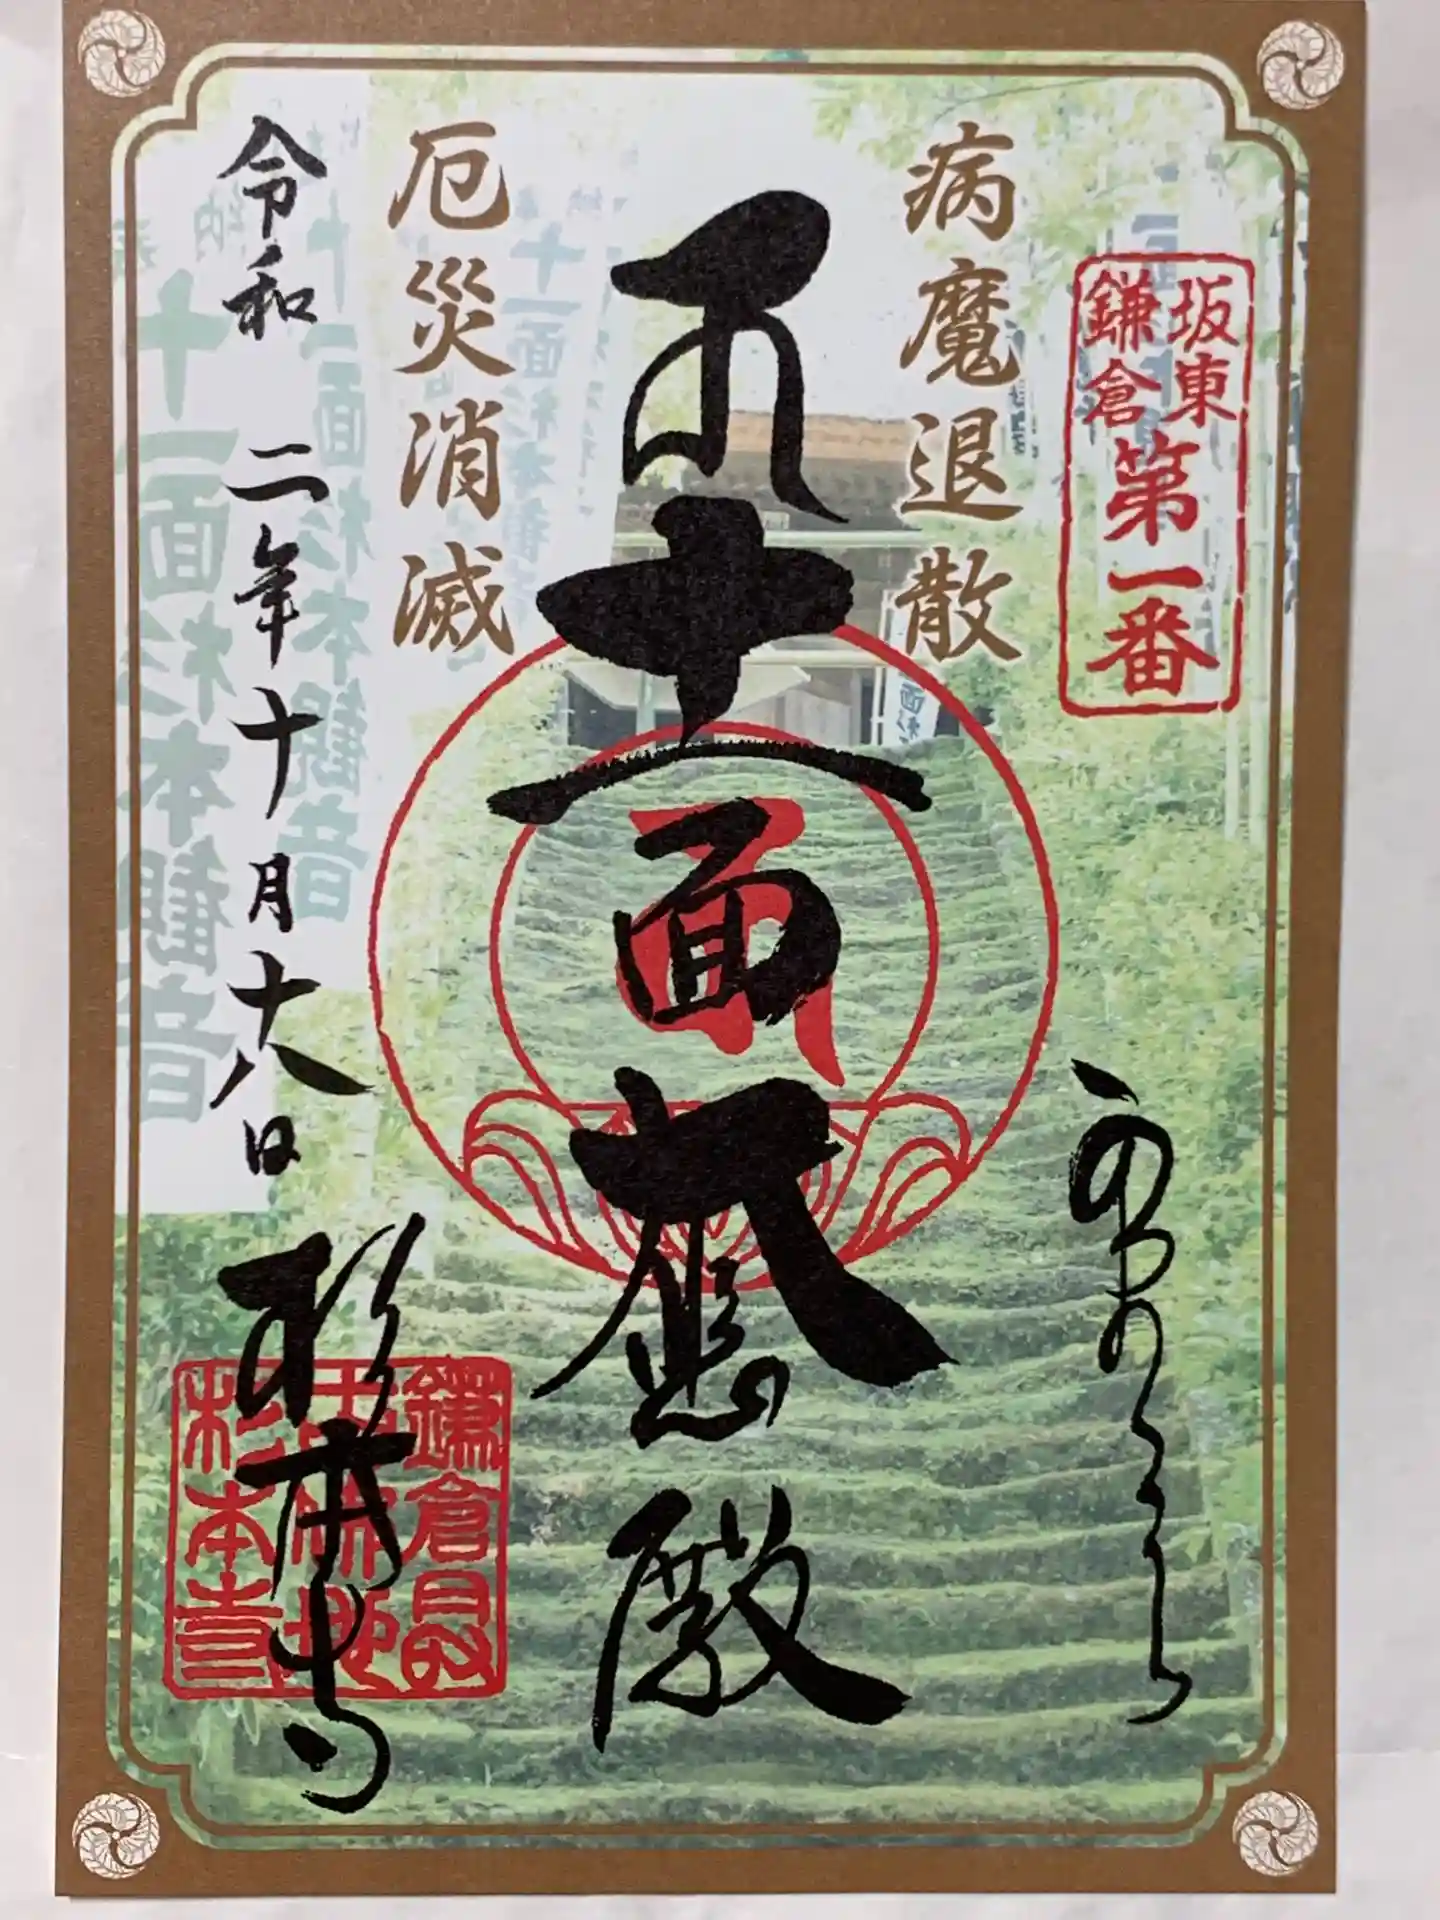 坂東
鎌倉
第一番
奉拝
病魔退散
十一面大悲殿
厄災消滅
令和二年十月十八日
杉本寺
鎌倉最
杉本寺
十一面杉本観音
十一面杉本観音